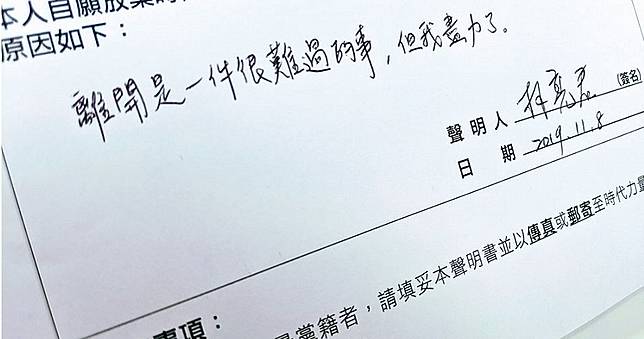 本人自願放棄時
原因如下：
離開是一件很難過的事，但我盡力了。
聲明人 林亮君 (簽名)
日期 2019.11.8
事項：
黨籍者，請填妥本聲明書並以傳真或郵寄至時代力量